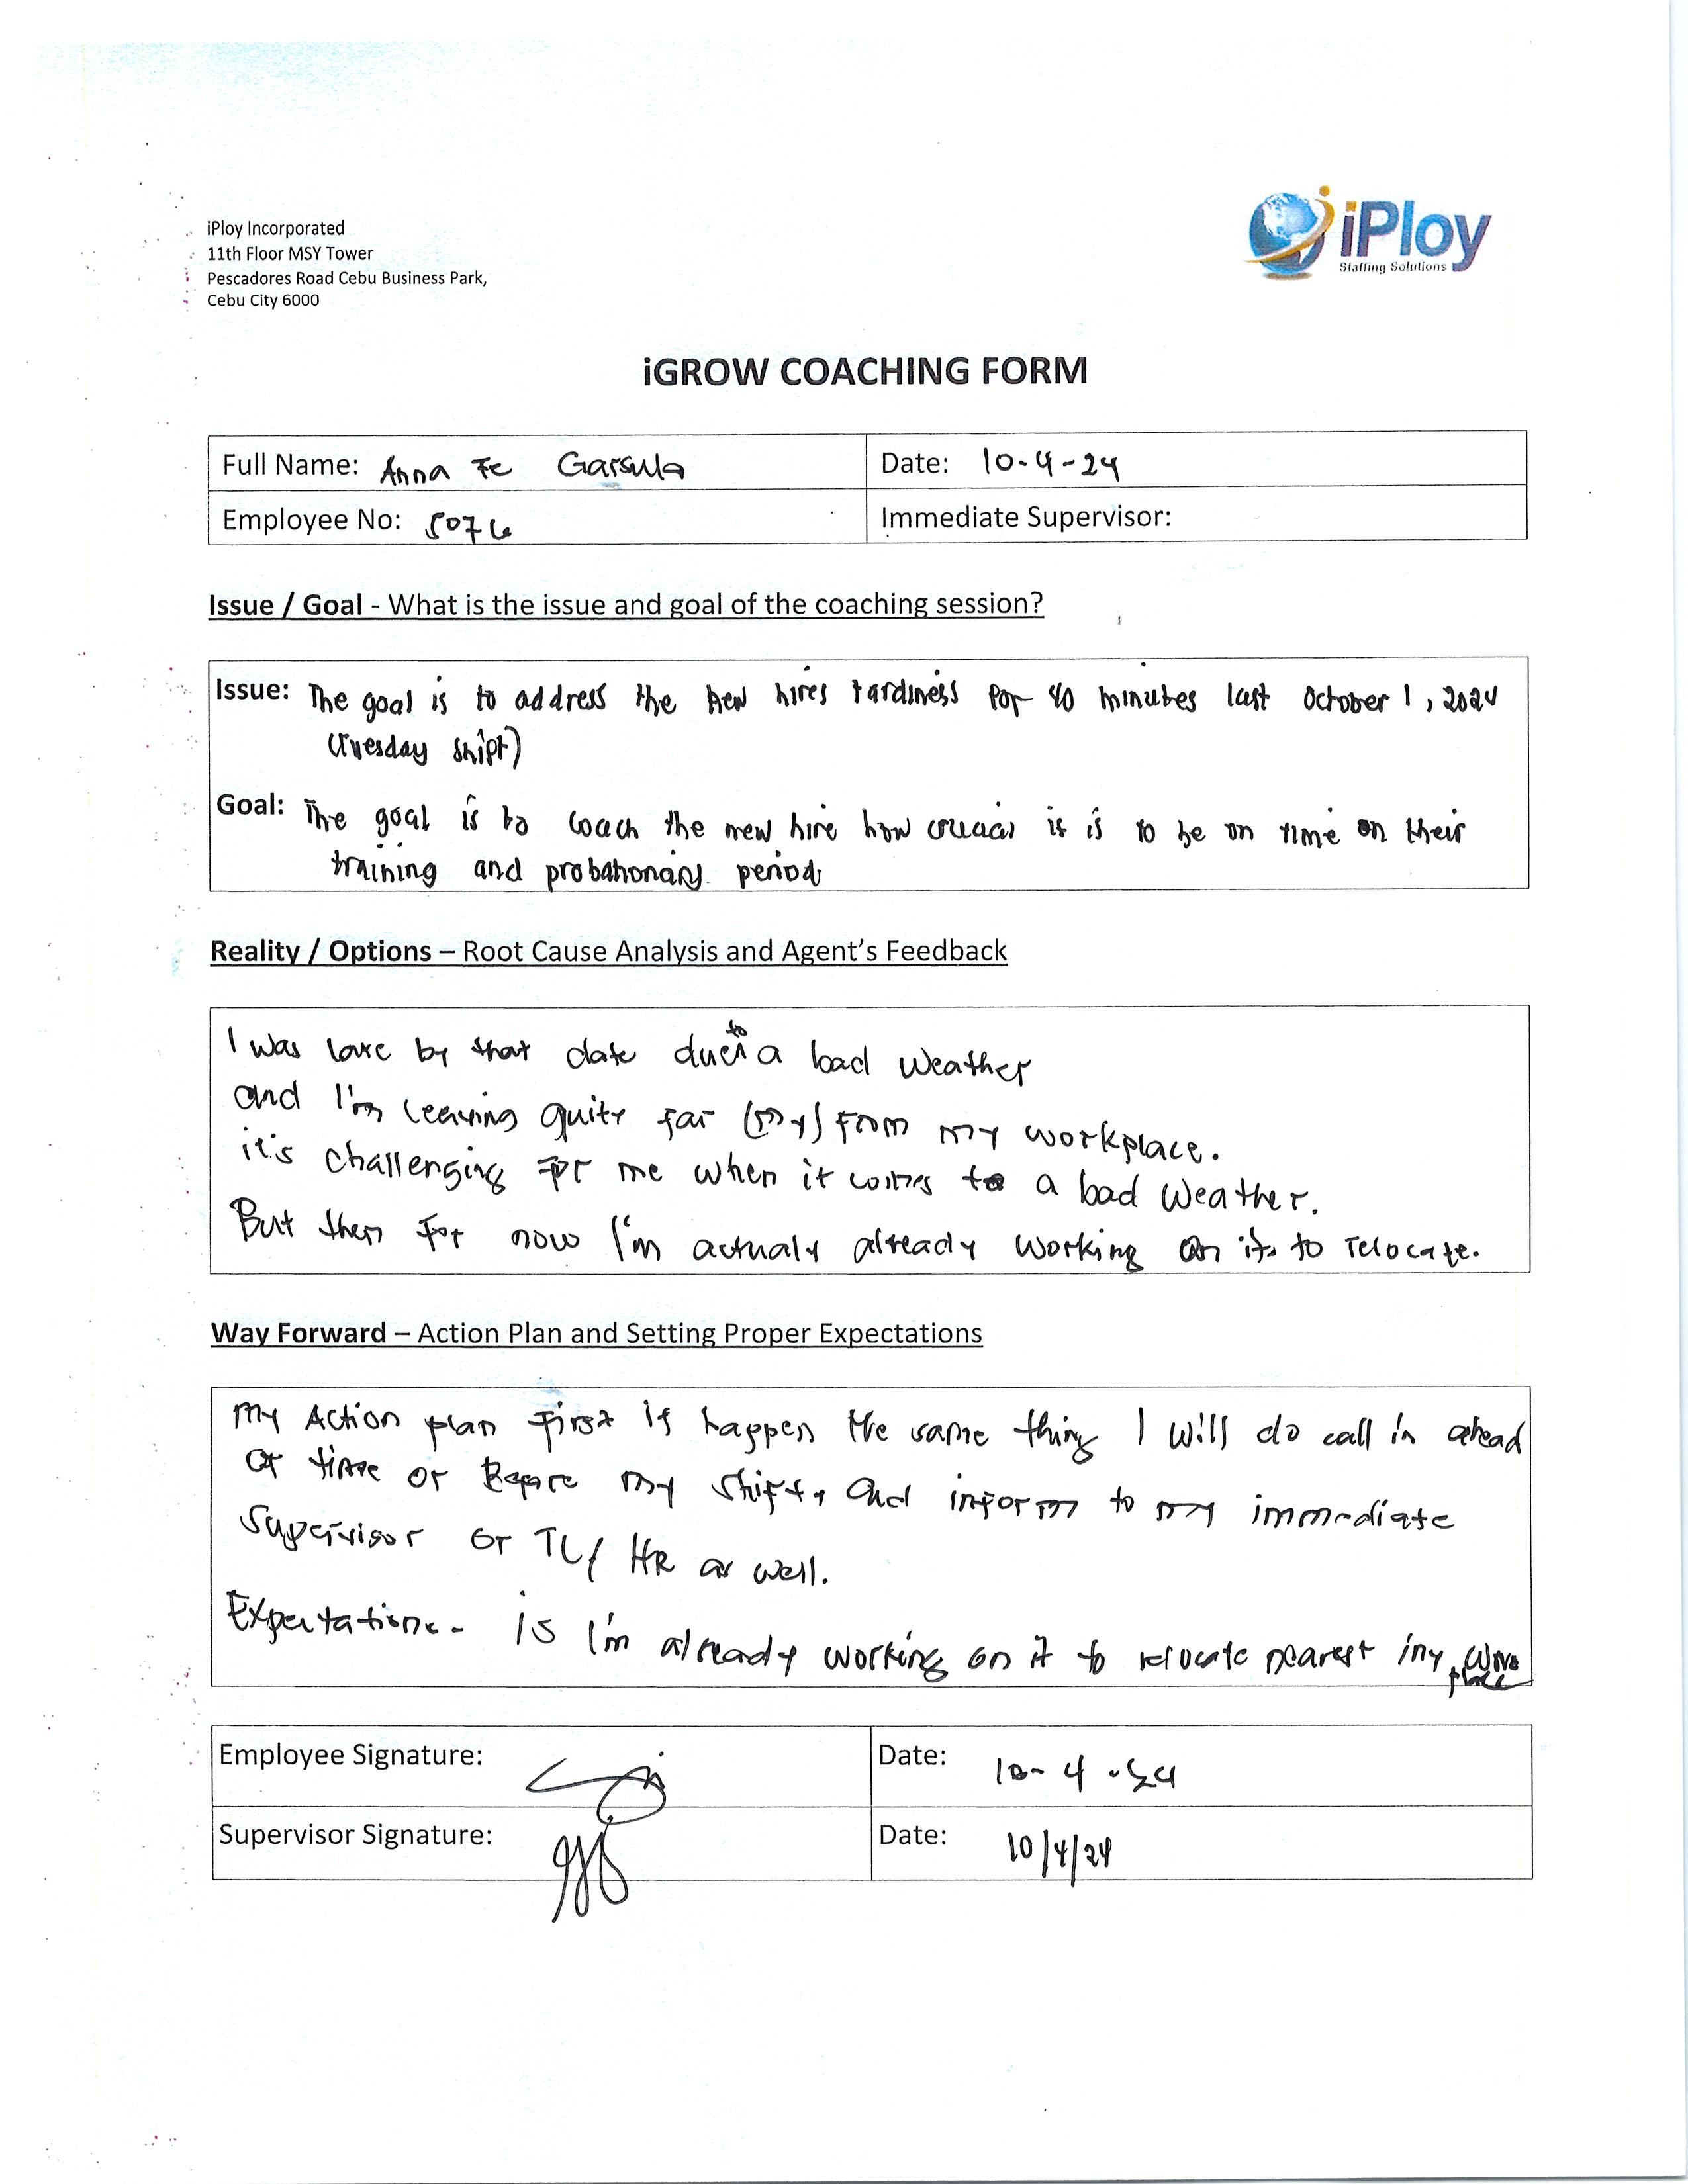 iPloy Incorporated
11th Floor MSY Tower
Pescadores Road Cebu Business Park,
Cebu City 6000
iPloy
Staffing Solutions
iGROW COACHING FORM
Full Name: Anna Fe Garsula
Date: 10-4-24
Employee No: 5076
Immediate Supervisor:
Issue / Goal - What is the issue and goal of the coaching session?
Issue: The goal is to address the new hires tardiness for 40 minutes last October 1, 2024
(Tuesday shift)
Goal: The goal is to coach the new hire how crucial it is to be on time on their
training and probationary period
Reality / Options – Root Cause Analysis and Agent's Feedback
I was late by that date due to a bad weather
and I'm leaving quite far (my) from my workplace.
it's challenging for me when it comes to a bad weather.
But then for now I'm actualy already working on it to relocate.
Way Forward – Action Plan and Setting Proper Expectations
My Action plan first if happen the same thing I will do call in ahead
of time or Before my shift, and inform to my immediate
Supervisor or TL/ HR as well.
Expectation - is I'm already working on it to relocate nearest in my
place
Employee Signature:
Date: 10-4-24
Supervisor Signature:
Date: 10/4/24